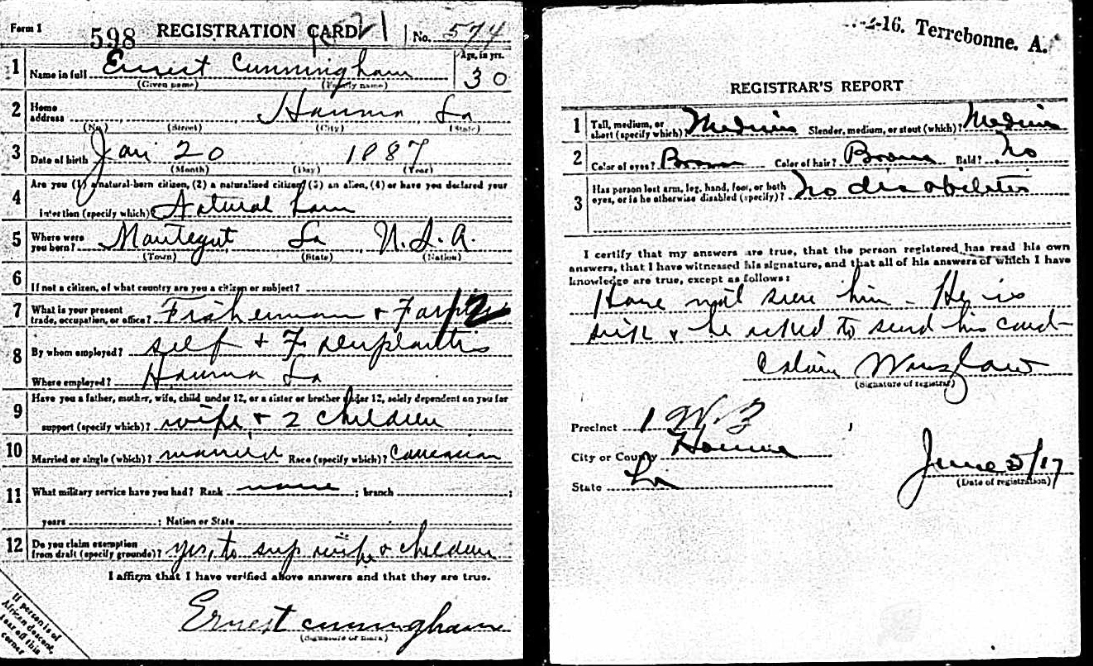 Form 1
598 REGISTRATION CARD No. 574
1 Name in full Ernest Cunningham Age, in yrs. 30
(Given name) (Family name)
2 Home address Houma La
(No.) (Street) (City) (State)
3 Date of birth Jan 20 1887
(Month) (Day) (Year)
4 Are you (1) a natural-born citizen, (2) a naturalized citizen, (3) an alien, (4) or have you declared your
intention (specify which)? Natural born
5 Where were you born? Montegut La U.S.A.
(Town) (State) (Nation)
6 If not a citizen, of what country are you a citizen or subject?
7 What is your present trade, occupation, or office? Fisherman + 2
8 By whom employed? self +
Where employed? Houma La
9 Have you a father, mother, wife, child under 12, or a sister or brother under 12, solely dependent on you for
support (specify which)? wife + 2 children
10 Married or single (which)? married Race (specify which)? Caucasian
11 What military service have you had? Rank none ; branch ;
years ; Nation or State
12 Do you claim exemption from draft (specify grounds)? Yes, to sup wife & children
I affirm that I have verified above answers and that they are true.
Ernest Cunningham
(Signature or mark)
If person is of
African descent,
tear off this
corner
-16. Terrebonne. A.
REGISTRAR'S REPORT
1 Tall, medium, or short (specify which)? Medium Slender, medium, or stout (which)? Medium
2 Color of eyes? Brown Color of hair? Brown Bald? No
3 Has person lost arm, leg, hand, foot, or both eyes, or is he otherwise disabled (specify)? No disabilities
I certify that my answers are true, that the person registered has read his own
answers, that I have witnessed his signature, and that all of his answers of which I have
knowledge are true, except as follows:
Have not seen him - He is
sick & he asked to send his card
Winslow
(Signature of registrar)
Precinct 1 W. 3
City or County Houma
State La
June 5/17
(Date of registration)